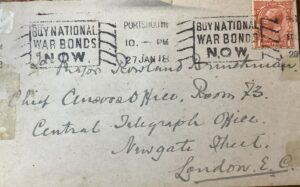 BUY NATIONAL
WAR BONDS
NOW
PORTSMOUTH
10. — PM
27 JAN 18
BUY NATIONAL
WAR BONDS
NOW
Major Rowland
Chief Office, Room 73.
Central Telegraph Office.
Newgate Street.
London. E.C.